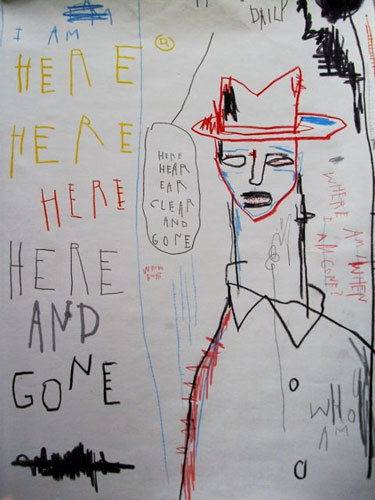 I AM
HERE
HERE
HERE
HERE
AND
GONE
DAILY
HERE
HEAR
EAR
CLEAR
AND
GONE
WHERE AM I WHEN
I AM GONE?
WHO
AM